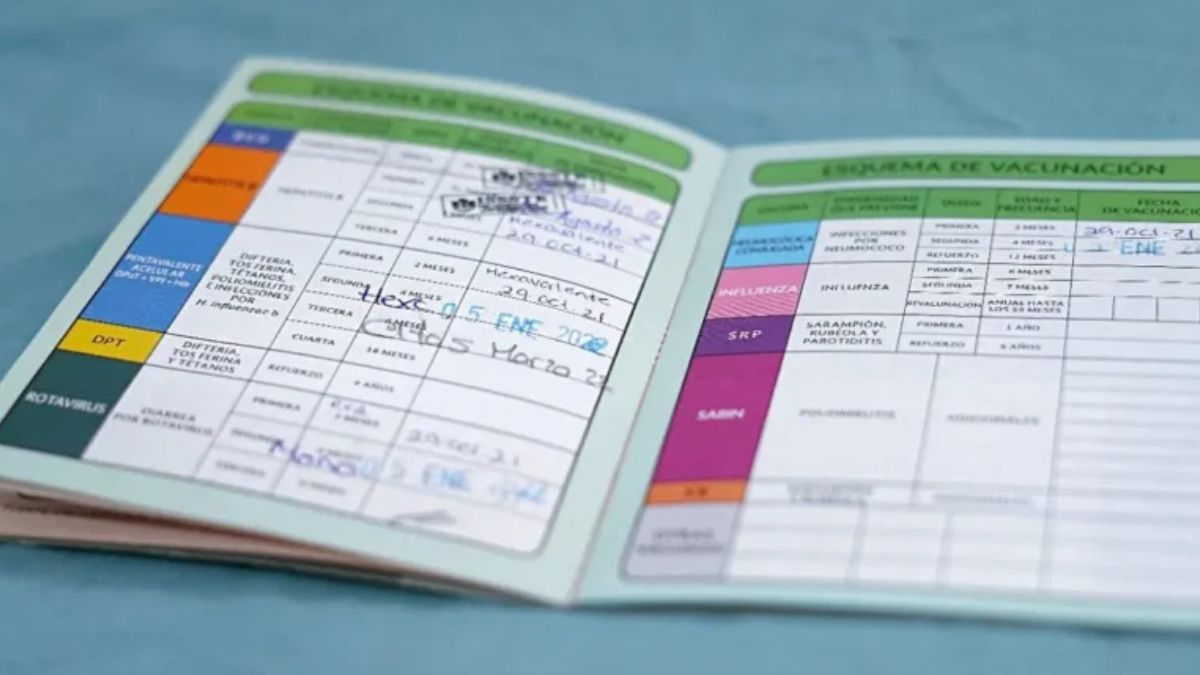 ESQUEMA DE VACUNACIÓN
HEPATITIS B
HEPATITIS B
SEGUNDA
TERCERA
6 MESES
Hexavalente
29.oct.21
PENTAVALENTE
ACELULAR
DPaT + VPI + Hib
DIFTERIA,
TOS FERINA,
TÉTANOS,
POLIOMIELITIS
E INFECCIONES
POR
H. influenzae b
PRIMERA
2 MESES
Hexavalente
29.oct.21
SEGUNDA
4 MESES
Hexa
05 ENE 2022
TERCERA
Marzo 22
CUARTA
18 MESES
DPT
DIFTERIA,
TOS FERINA
Y TÉTANOS
REFUERZO
4 AÑOS
ROTAVIRUS
DIARREA
POR ROTAVIRUS
PRIMERA
2 MESES
29.oct.21
SEGUNDA
ENE
ESQUEMA DE VACUNACIÓN
VACUNA
ENFERMEDAD
QUE PREVIENE
DOSIS
EDAD Y
FRECUENCIA
FECHA
DE VACUNACIÓN
NEUMOCÓCICA
CONJUGADA
INFECCIONES
POR
NEUMOCOCO
PRIMERA
2 MESES
29.oct.21
SEGUNDA
4 MESES
ENE
REFUERZO
12 MESES
INFLUENZA
INFLUENZA
PRIMERA
6 MESES
SEGUNDA
7 MESES
REVACUNACIÓN
ANUAL HASTA
LOS 59 MESES
SRP
SARAMPIÓN,
RUBÉOLA Y
PAROTIDITIS
PRIMERA
1 AÑO
REFUERZO
6 AÑOS
SABIN
POLIOMIELITIS
ADICIONALES